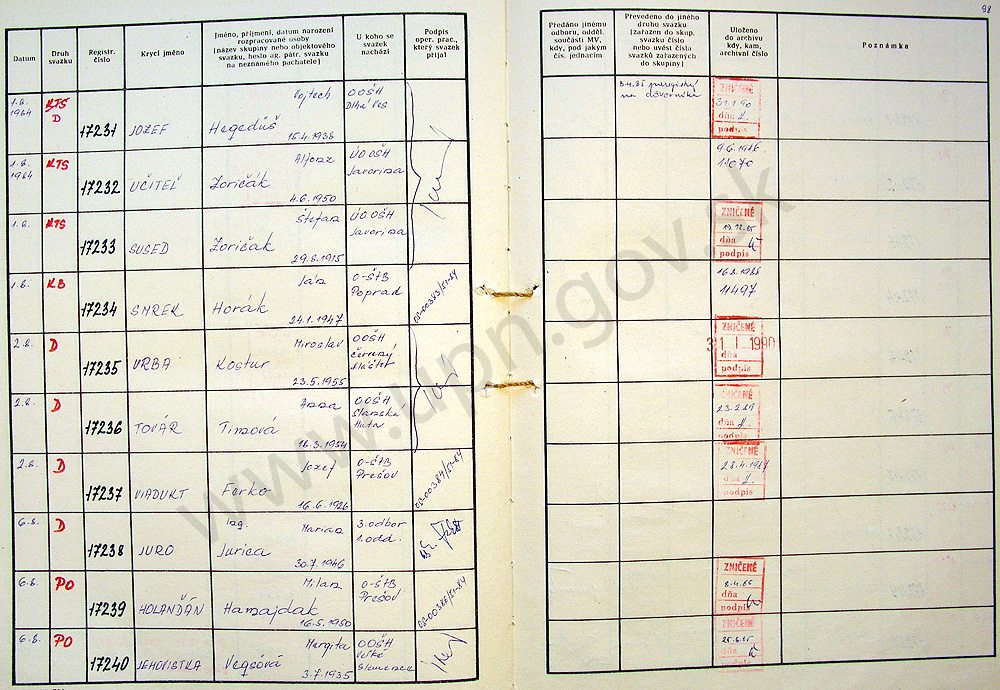 98
Datum
Druh svazku
Registr. číslo
Krycí jméno
Jméno, příjmení, datum narození
rozpracované osoby
(název skupiny nebo objektového
svazku, heslo ag. pátr. svazku
na neznámého pachatele)
U koho se
svazek
nachází
Podpis
oper. prac.,
který svazek
přijal
Předáno jinému
odboru, odděl.
součásti MV,
kdy, pod jakým
čís. jednacím
Převedeno do jiného
druhu svazku
(zařazen do skup.
svazku číslo
nebo uvést čísla
svazků zařazených
do skupiny)
Uloženo
do archivu
kdy, kam,
archivní číslo
Poznámka
1.8. 1984 KTS D 17231 JOZEF Hegedűš Vojtech 15.4.1938 OOŠH Dlhá Ves
3.4.85
na dôverníka
ZNIČENÉ
31.1.90
dňa
podpis
1.8. 1984 KTS 17232 UČITEĽ Zoričák Alfonz 4.6.1950 ÚOOŠH Javorina
11070
1.8. KTS 17233 SUSED Zoričák Štefan 29.8.1915 ÚOOŠH Javorina
ZNIČENÉ
19.12.85
dňa
podpis
1.8. KB 17234 SMREK Horák Ján 24.1.1947 O-ŠTB Poprad
16.8.1988
11497
2.8. D 17235 VRBA Kostur Miroslav 23.5.1955 OOŠH
ZNIČENÉ
31 1 1990
dňa
podpis
2.8. D 17236 TOVÁR Timová Anna 16.3.1954 OOŠH Slanská Huta
ZNIČENÉ
23.2.89
dňa
podpis
2.8. D 17237 VIADUKT Ferko Jozef 16.6.1926 O-ŠTB Prešov
ZNIČENÉ
dňa
podpis
6.8. D 17238 JURO Ing. Jurica Marian 30.7.1946 3.odbor 1.odd.
6.8. PO 17239 HOLANĎÁN Hamajdák Milan 16.5.1950 O-ŠTB Prešov
ZNIČENÉ
8.4.86
dňa
podpis
6.8. PO 17240 JEHOVISTKA Vegsövá Margita 3.7.1935 OOŠH Veľké Slemence
ZNIČENÉ
25.6.85
dňa
podpis
www.upn.gov.sk